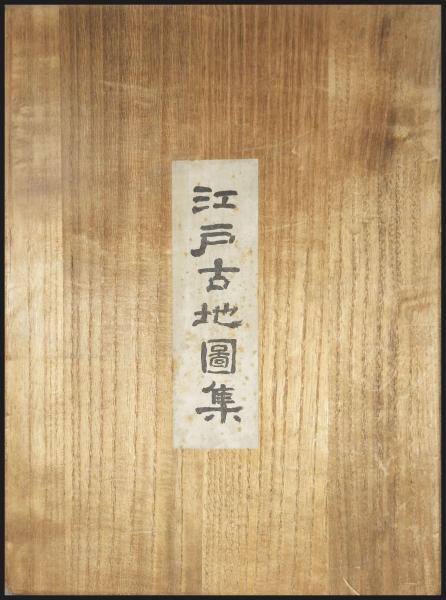 江戸古地圖集